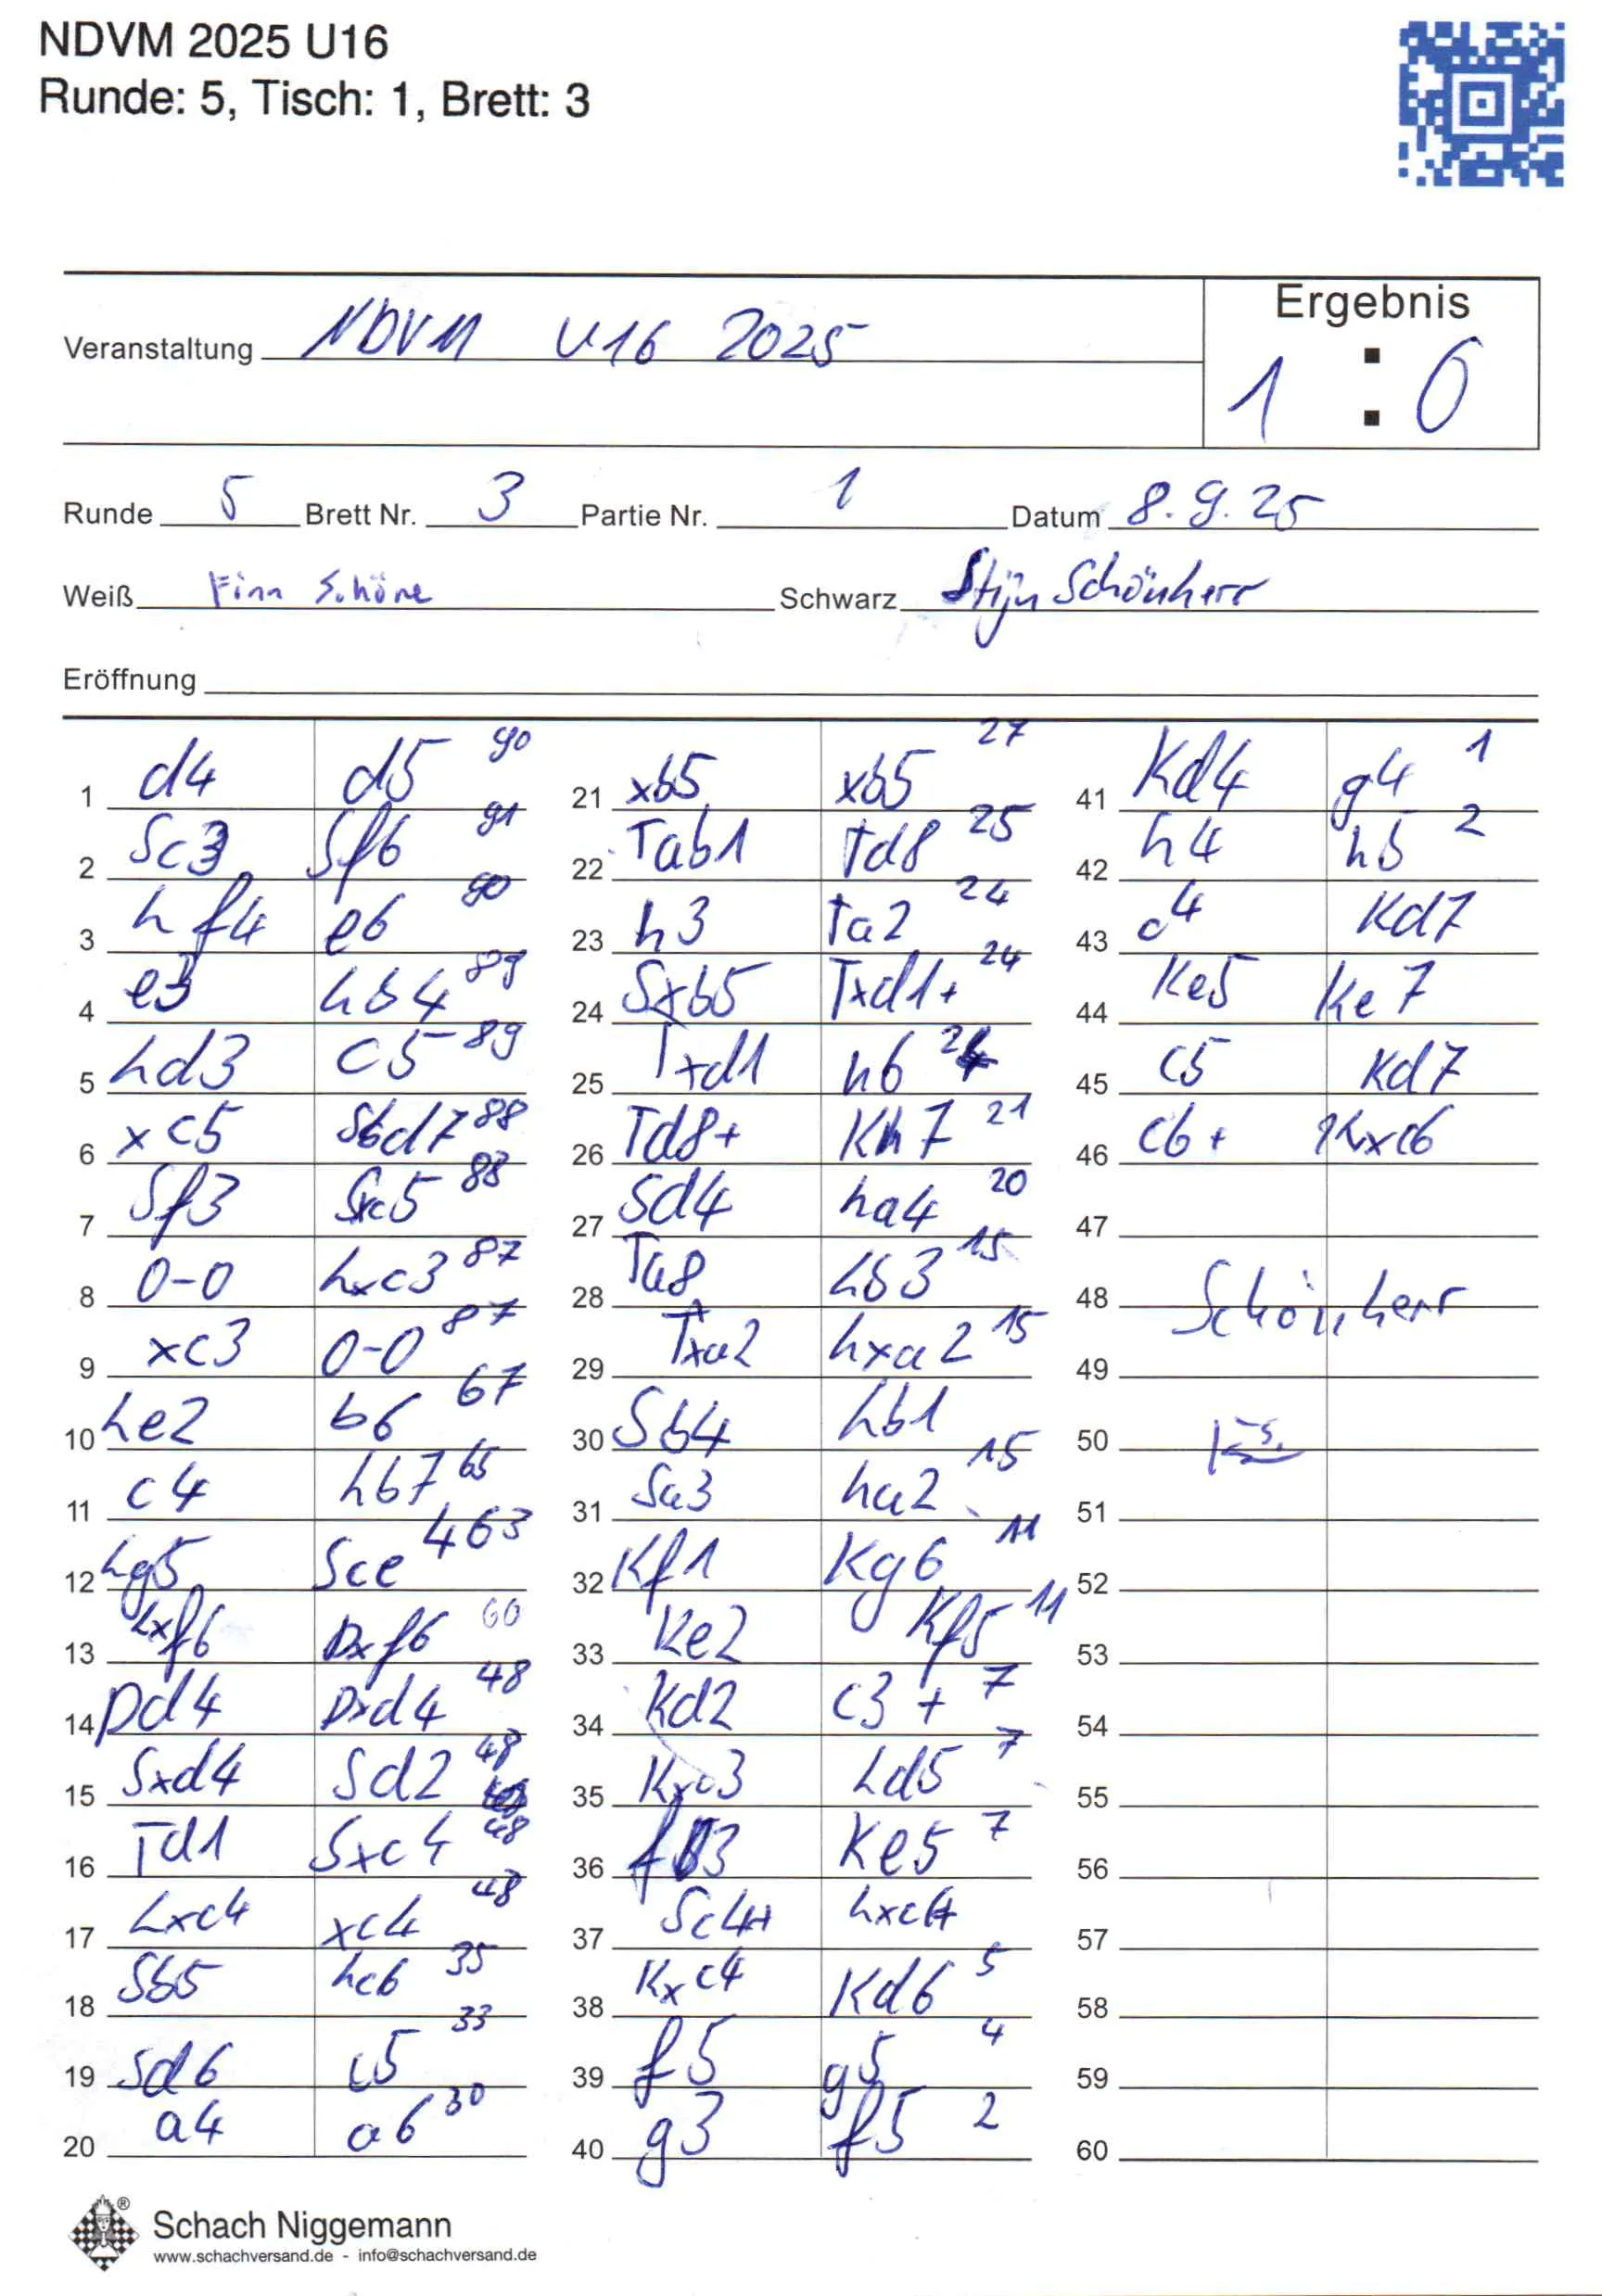 NDVM 2025 U16
Runde: 5, Tisch: 1, Brett: 3
Ergebnis
Veranstaltung NDVM U16 2025
1 : 0
Runde 5 Brett Nr. 3 Partie Nr. 1 Datum 8.9.25
Weiß Finn Schöne Schwarz Stijn Schönherr
Eröffnung
1 d4 d5 90
2 Sc3 Sf6 91
3 Lf4 e6 90
4 e3 Lb4 89
5 Ld3 c5 89
6 xc5 Sbd7 88
7 Sf3 Sxc5 88
8 0-0 Lxc3 87
9 xc3 0-0 87
10 Le2 b6 67
11 c4 Lb7 65
12 Lg5 Sce4 63
13 Lxf6 Dxf6 60
14 Dd4 Dxd4 48
15 Sxd4 Sd2 48
16 Td1 Sxc4 48
17 Lxc4 xc4 48
18 Sb5 Lc6 35
19 Sd6 c5 33
20 a4 a6 30
21 xb5 xb5 27
22 Tab1 Td8 25
23 h3 Ta2 24
24 Sxb5 Txd1+ 24
25 Txd1 h6 24
26 Td8+ Kh7 21
27 Sd4 La4 20
28 Ta8 Lb3 15
29 Txa2 Lxa2 15
30 Sb4 Lb1
31 Sa3 La2 15
32 Kf1 Kg6 11
33 Ke2 Kf5 11
34 Kd2 c3+ 7
35 Kxc3 Ld5 7
36 f3 Ke5 7
37 Sc4+ Lxc4
38 Kxc4 Kd6 5
39 f5 g5 4
40 g3 f5 2
41 Kd4 g4 1
42 h4 h5 2
43 c4 Kd7
44 Ke5 Ke7
45 c5 Kd7
46 c6+ Kxc6
47
48 Schönherr
49
50
51
52
53
54
55
56
57
58
59
60
Schach Niggemann
www.schachversand.de - info@schachversand.de